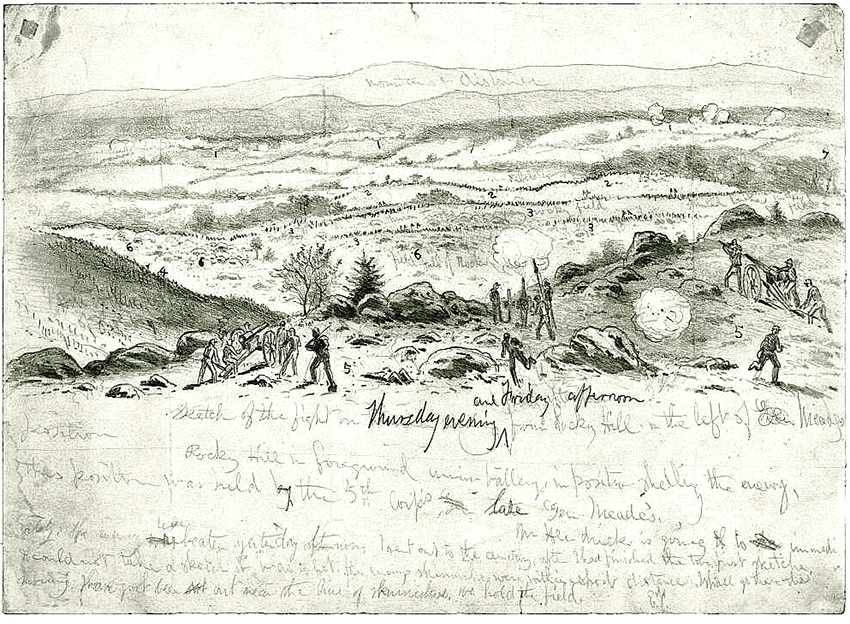 mountain distance
1 1 1 1 7
2 2 2
3 3 3 3
6 6 6
4
5 5
and Friday afternoon
Sketch of the fight on Thursday evening from Rocky Hill in the left of Gen Meades
position
Rocky Hill in foreground union battery in position shelling the enemy,
this position was held by the 5th Corps, late Gen Meade's.
Mr Hendricks is going to immedi
ately. the enemy beaten yesterday afternoon. I went out to the cemetery after I had finished the two first sketches
could not take a sketch it was so hot. the enemy skirmishers were only a short distance. I shall go there this
morning. have just been out near the line of skirmishers, we hold the field.